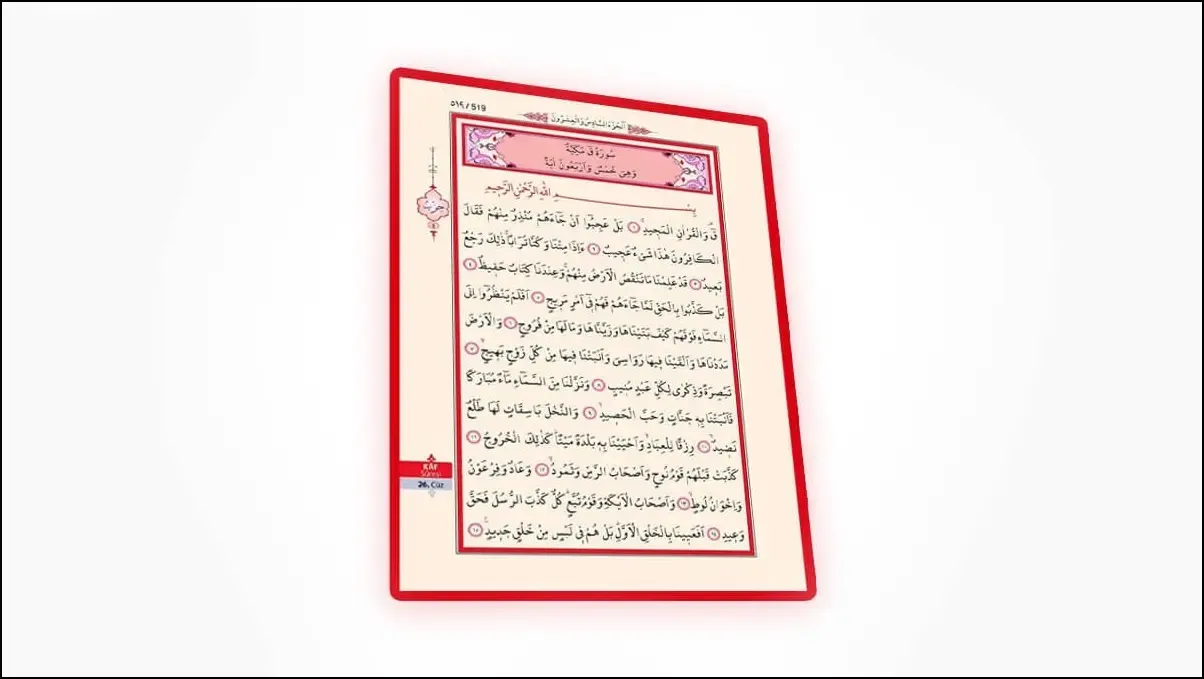 ٥١٩ / 519
اَلْجُزْءُ السَّادِسُ وَالْعِشْرُونَ
سُورَةُ قٓ مَكِّيَّةٌ
وَهِيَ خَمْسٌ وَاَرْبَعُونَ اٰيَةً
بِسْمِ اللّٰهِ الرَّحْمٰنِ الرَّحِيمِ
حزب
قٓ وَالْقُرْاٰنِ الْمَجِيدِ ﴿١﴾ بَلْ عَجِبُٓوا اَنْ جَٓاءَهُمْ مُنْذِرٌ مِنْهُمْ فَقَالَ
الْكَافِرُونَ هٰذَا شَيْءٌ عَجِيبٌ ﴿٢﴾ ءَاِذَا مِتْنَا وَكُنَّا تُرَابًاۚ ذٰلِكَ رَجْعٌ
بَعِيدٌ ﴿٣﴾ قَدْ عَلِمْنَا مَا تَنْقُصُ الْاَرْضُ مِنْهُمْۚ وَعِنْدَنَا كِتَابٌ حَفِيظٌ ﴿٤﴾
بَلْ كَذَّبُوا بِالْحَقِّ لَمَّا جَٓاءَهُمْ فَهُمْ فِٓي اَمْرٍ مَرِيجٍ ﴿٥﴾ اَفَلَمْ يَنْظُرُٓوا اِلَى
السَّمَٓاءِ فَوْقَهُمْ كَيْفَ بَنَيْنَاهَا وَزَيَّنَّاهَا وَمَا لَهَا مِنْ فُرُوجٍ ﴿٦﴾ وَالْاَرْضَ
مَدَدْنَاهَا وَاَلْقَيْنَا فِيهَا رَوَاسِيَ وَاَنْبَتْنَا فِيهَا مِنْ كُلِّ زَوْجٍ بَهِيجٍ ﴿٧﴾
تَبْصِرَةً وَذِكْرٰى لِكُلِّ عَبْدٍ مُنِيبٍ ﴿٨﴾ وَنَزَّلْنَا مِنَ السَّمَٓاءِ مَٓاءً مُبَارَكًا
فَاَنْبَتْنَا بِهِ جَنَّاتٍ وَحَبَّ الْحَصِيدِ ﴿٩﴾ وَالنَّخْلَ بَاسِقَاتٍ لَهَا طَلْعٌ
نَضِيدٌ ﴿١٠﴾ رِزْقًا لِلْعِبَادِۙ وَاَحْيَيْنَا بِهِ بَلْدَةً مَيْتًاۜ كَذٰلِكَ الْخُرُوجُ ﴿١١﴾
كَذَّبَتْ قَبْلَهُمْ قَوْمُ نُوحٍ وَاَصْحَابُ الرَّسِّ وَثَمُودُ ﴿١٢﴾ وَعَادٌ وَفِرْعَوْنُ
وَاِخْوَانُ لُوطٍ ﴿١٣﴾ وَاَصْحَابُ الْاَيْكَةِ وَقَوْمُ تُبَّعٍۜ كُلٌّ كَذَّبَ الرُّسُلَ فَحَقَّ
وَعِيدِ ﴿١٤﴾ اَفَعَيِينَا بِالْخَلْقِ الْاَوَّلِۜ بَلْ هُمْ فِي لَبْسٍ مِنْ خَلْقٍ جَدِيدٍ ﴿١٥﴾
KÂF
Sûresi
26. Cüz